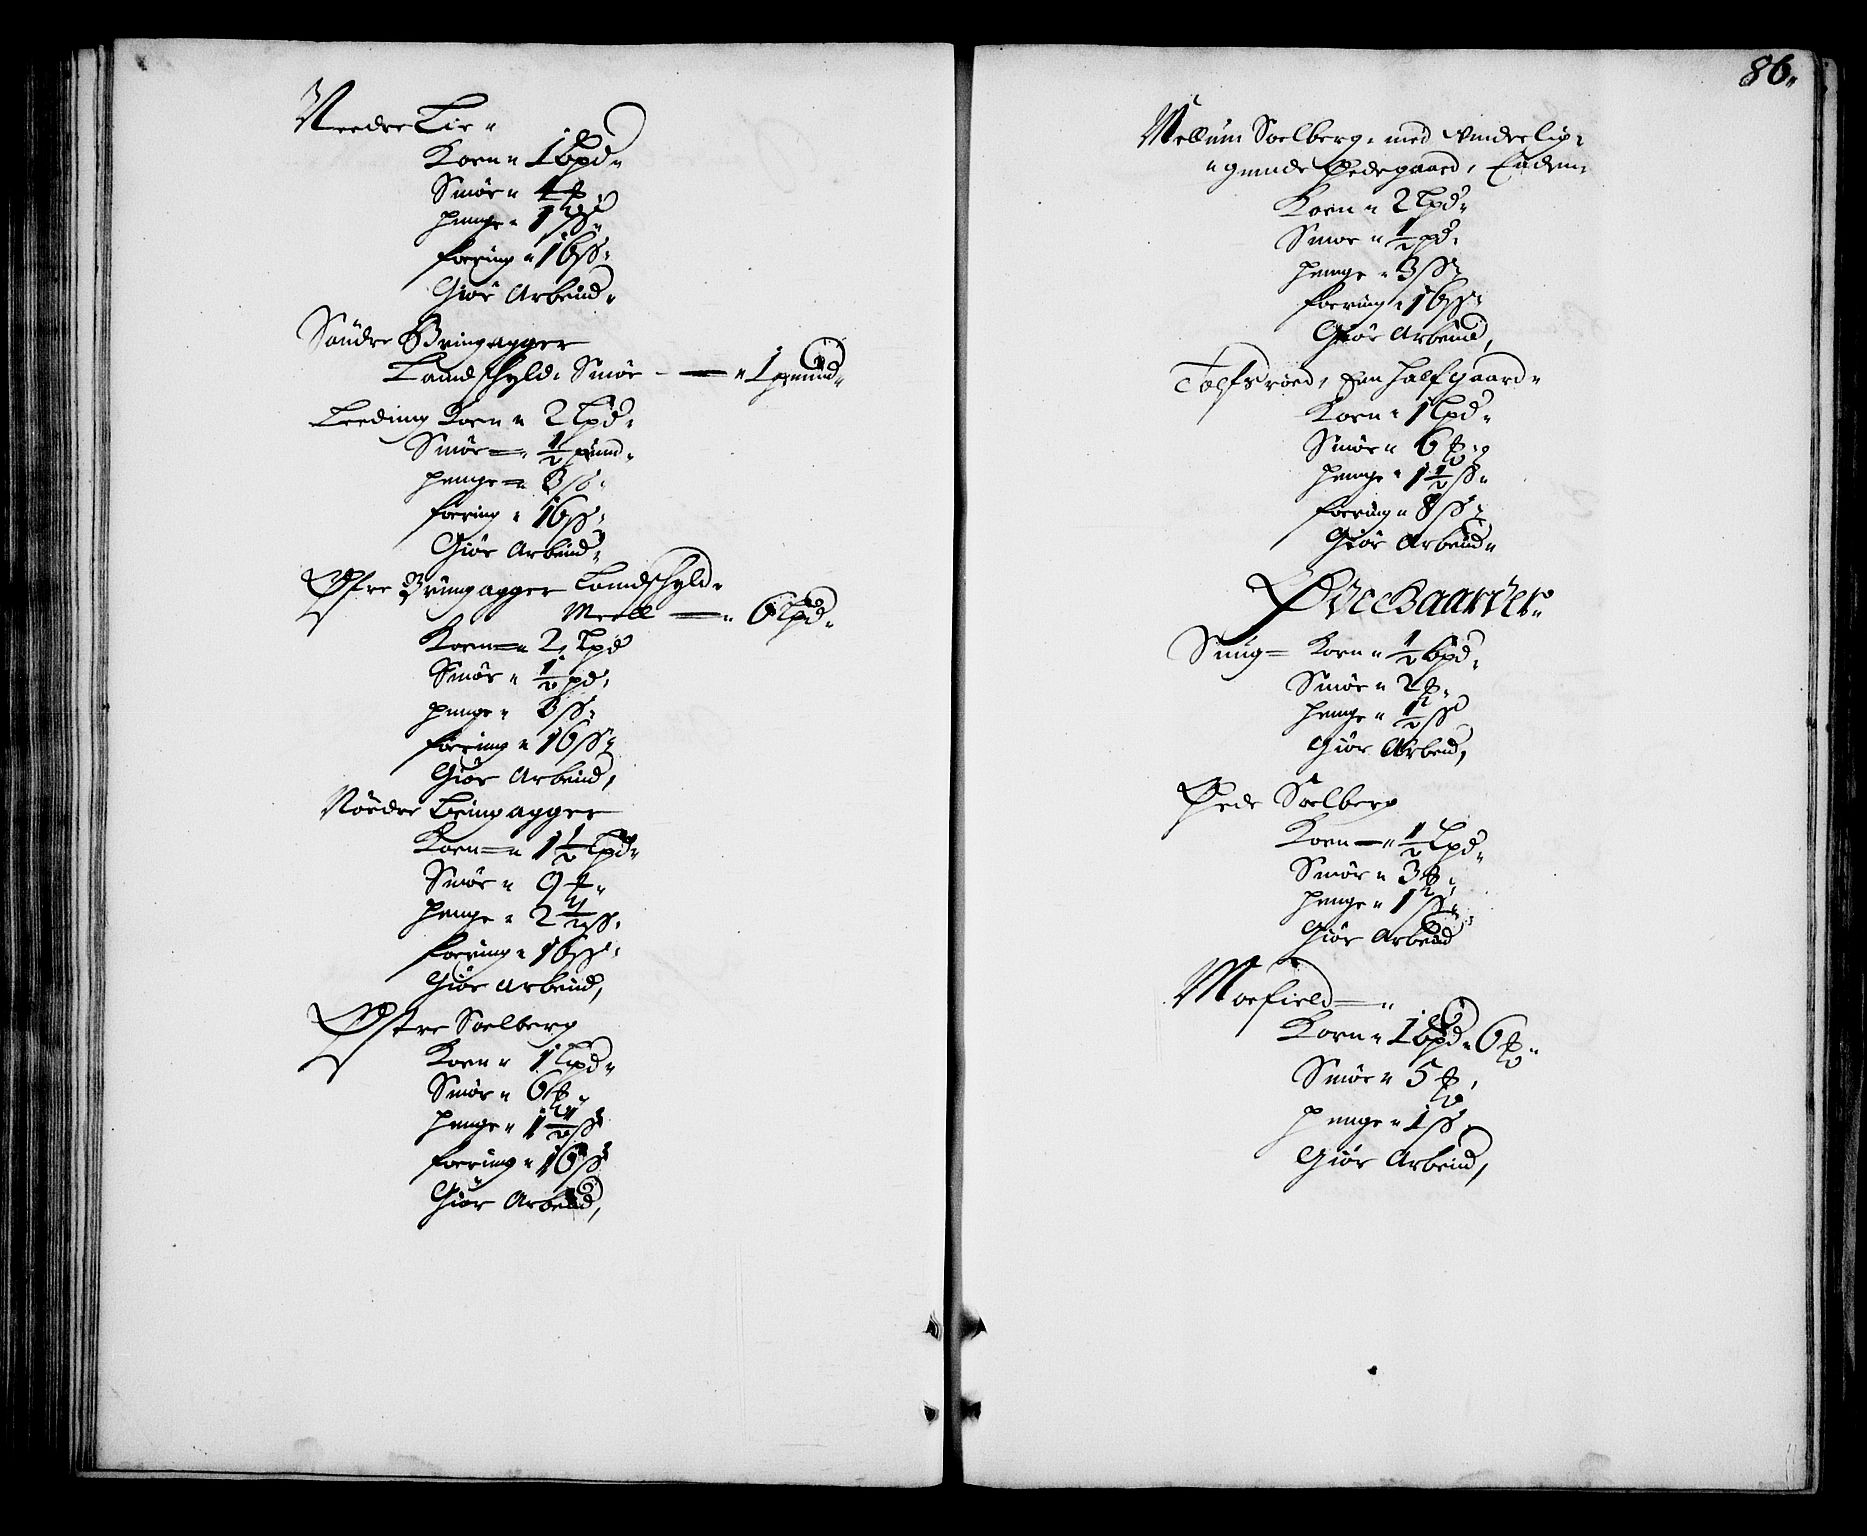 Needre Lie „
Korn „ 1 bpd „
Smør „ 4 ℔ „
penge „ 1 ß „
foering „ 16 ß „
Giør Arbeiid „
Søndre Bringagger
Landschyld: Smør – — „ 1 pund „
Leeding Korn „ 2 Lpd „
Smør = „ ½ pund „
penge = „ 3 ß „
foering „ 16 ß „
Giør Arbeiid „
Øfre Bringagger Landschyld „
Meell — „ 6 Lpd „
Korn = „ 2 Lpd
Smør „ ½ pd „
penge „ 3 ß „
foering „ 16 ß „
Giør Arbeiid,
Nordre Bringagger
Korn = „ 1½ Lpd „
Smør „ 9 ℔ „
penge „ 2½ ß „
foering „ 16 ß „
Giør Arbeiid,
Østre Soelberg
Korn „ 1 Lpd „
Smør „ 6 ℔ „
penge „ 1½ ß
foering „ 16 ß
Giør Arbeiid,
86 „
Mellum Soelberg „ med Underlig:
„ gende Ødegaard,
Korn „ 2 Lpd „
Smør „ ½ pd „
penge „ 3 ß
foering „ 16 ß
Giør Arbeiid,
Tolfsrøed, Een halfgaard „
Korn „ 1 Lpd „
Smør „ 6 ℔ „
penge „ 1½ ß „
foering „ 8 ß
Giør Arbeiid „
Ødegaarder „
Korn „ ½ bpd „
Smør „ 2 ℔ „
penge „ ½ ß
Giør Arbeid,
Øede Soelberg
Korn — „ ½ Lpd „
Smør „ 3 ℔
penge „ 1 ß „
Giør Arbeiid
Moefield — „
Korn „ 1 bpd „ 6 ℔ „
Smør „ 5 ℔,
penge „ 1 ß „
Giør Arbeiid,